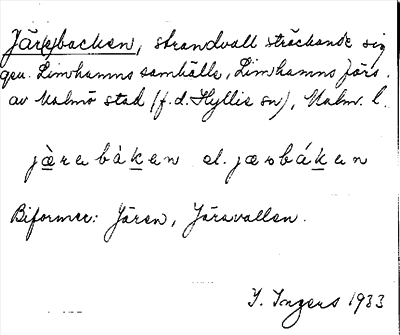 Jär(e)backen, strandvall sträckande sig
gen. Limhamns samhälle, Limhamns förs.
av Malmö stad (f.d. Hyllie sn), Malm. l.
jæ̀rebáken el. jærbáken
Biformer: Jären, Järavallen.
I. Ingers 1933